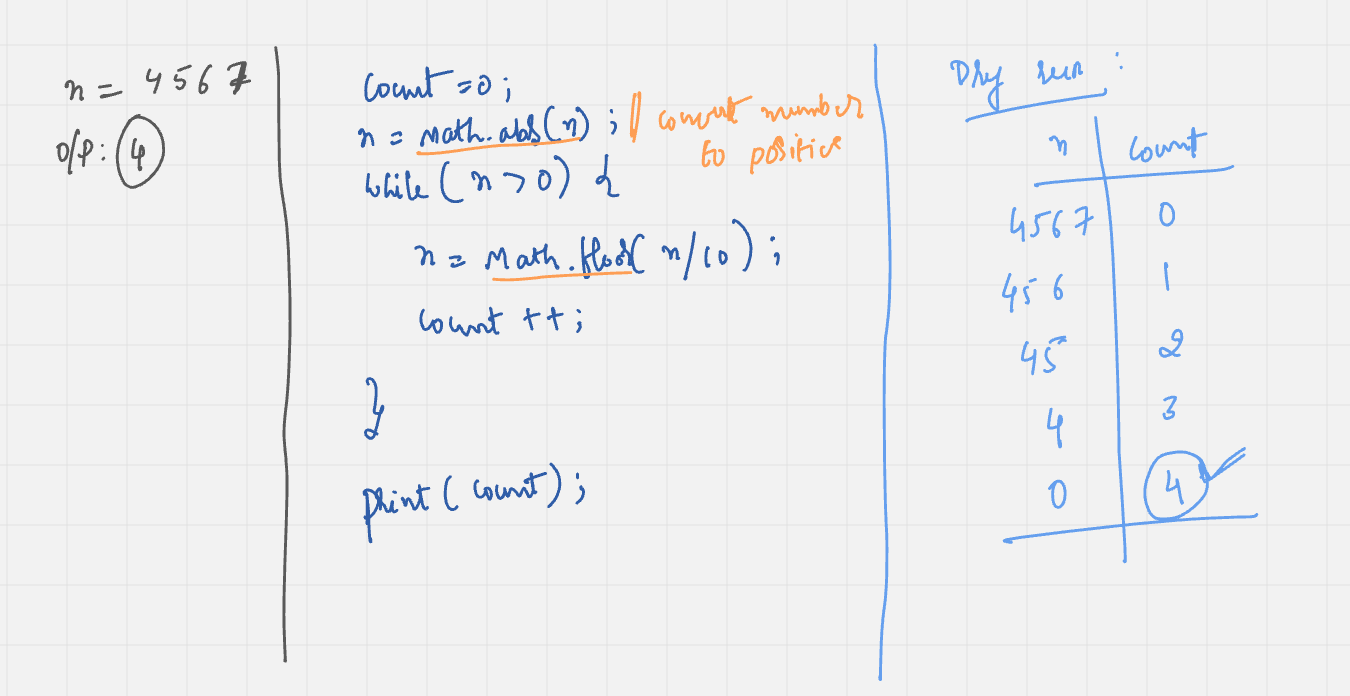 n = 4567
o/p: 4
Count = 0;
n = Math.abs(n); // convert number
to positive
while (n > 0) {
n = Math.floor(n/10);
count ++;
}
print (count);
Dry run :
n count
4567 0
456 1
45 2
4 3
0 4